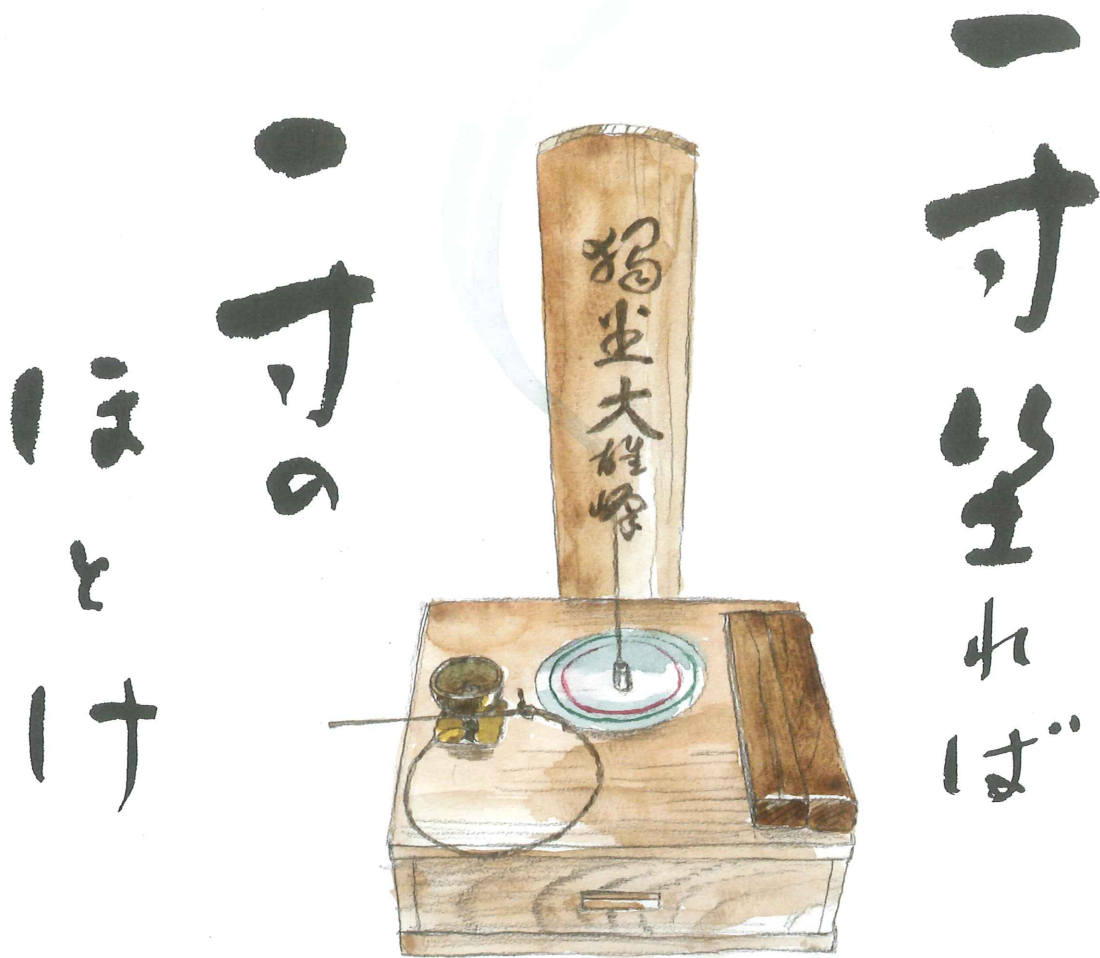 一寸坐れば
一寸の
ほとけ
獨坐大雄峰